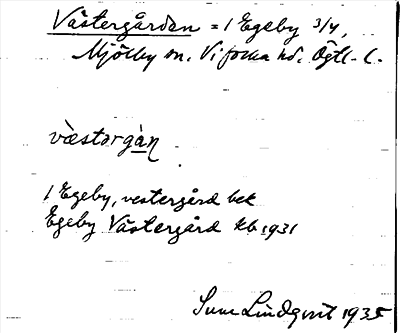 Västergården = 1 Egeby 3/4,
Mjölby sn. Vifolka hd. Ögtl. l.
vèstərgàn
1 Egeby, vestergård bek
Egeby Västergård kb 1931
Sune Lindqvist 1935